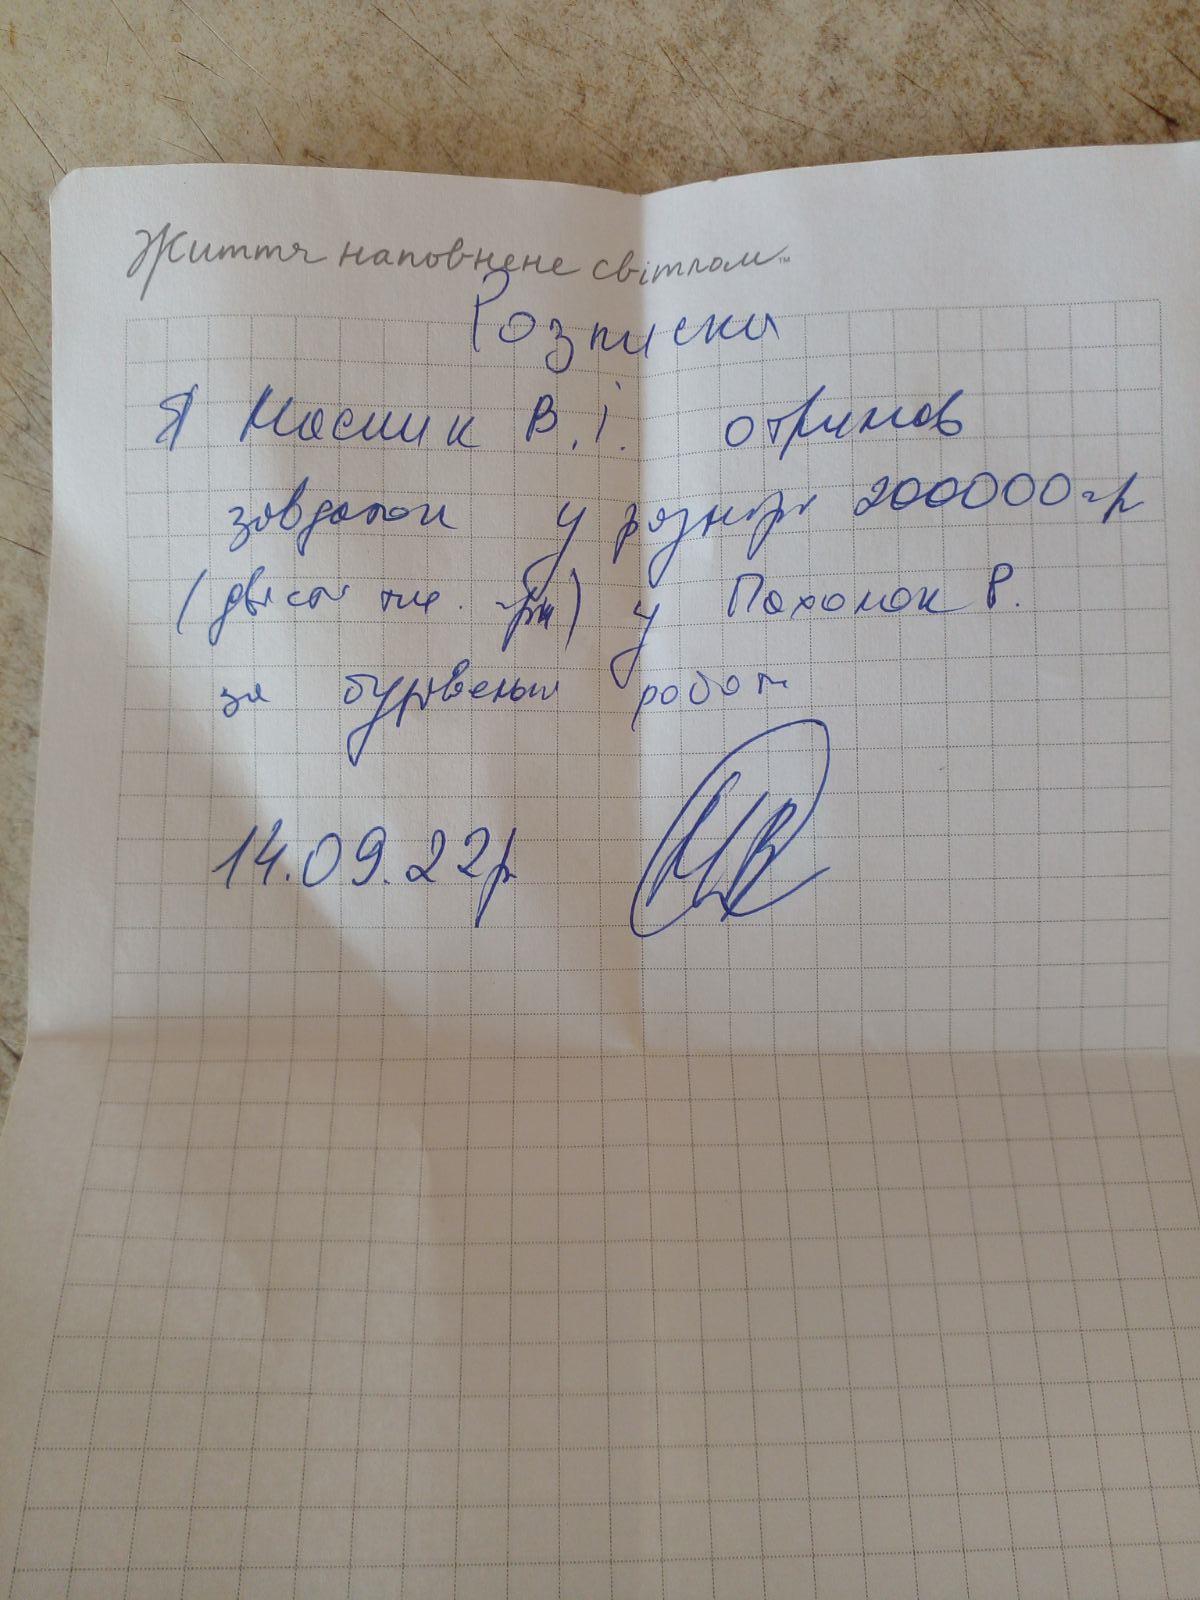 Життя наповнене світлом™
Розписка
Я Масник В.І. отримав
завдаток у розмірі 200000 гр
(двісті тис. грн) у Пахолок Р.
за будівельні роботи
14.09.22р